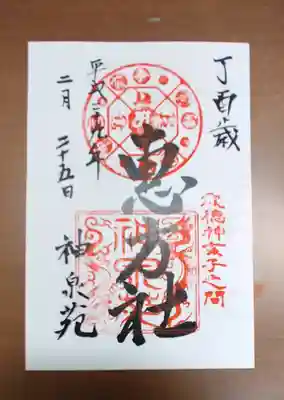 丁酉歳
歳徳神亥子之間
恵方社
平成二十九年
二月二十五日
神泉苑